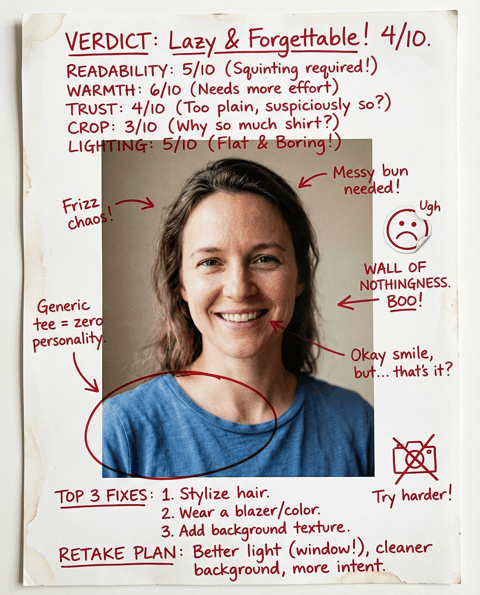 VERDICT: Lazy & Forgettable! 4/10.
READABILITY: 5/10 (Squinting required!)
WARMTH: 6/10 (Needs more effort)
TRUST: 4/10 (Too plain, suspiciously so?)
CROP: 3/10 (Why so much shirt?)
LIGHTING: 5/10 (Flat & Boring!)
Messy bun
needed!
Frizz
chaos!
Ugh
WALL OF
NOTHINGNESS.
BOO!
Generic
tee = zero
personality.
Okay smile,
but... that's it?
Try harder!
TOP 3 FIXES: 1. Stylize hair.
2. Wear a blazer/color.
3. Add background texture.
RETAKE PLAN: Better light (window!), cleaner
background, more intent.